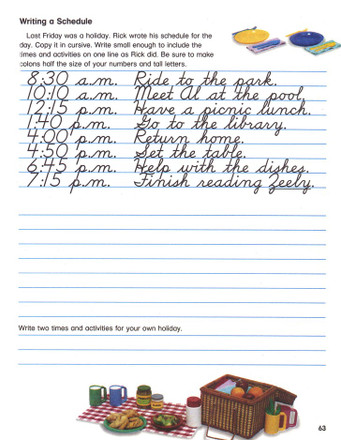 Writing a Schedule
Last Friday was a holiday. Rick wrote his schedule for the
day. Copy it in cursive. Write small enough to include the
times and activities on one line as Rick did. Be sure to make
colons half the size of your numbers and tall letters.
8:30 a.m. Ride to the park.
10:10 a.m. Meet Al at the pool.
12:15 p.m. Have a picnic lunch.
1:40 p.m. Go to the library.
4:00 p.m. Return home.
4:50 p.m. Set the table.
6:45 p.m. Help with the dishes.
7:15 p.m. Finish reading Zeely.
Write two times and activities for your own holiday.
63